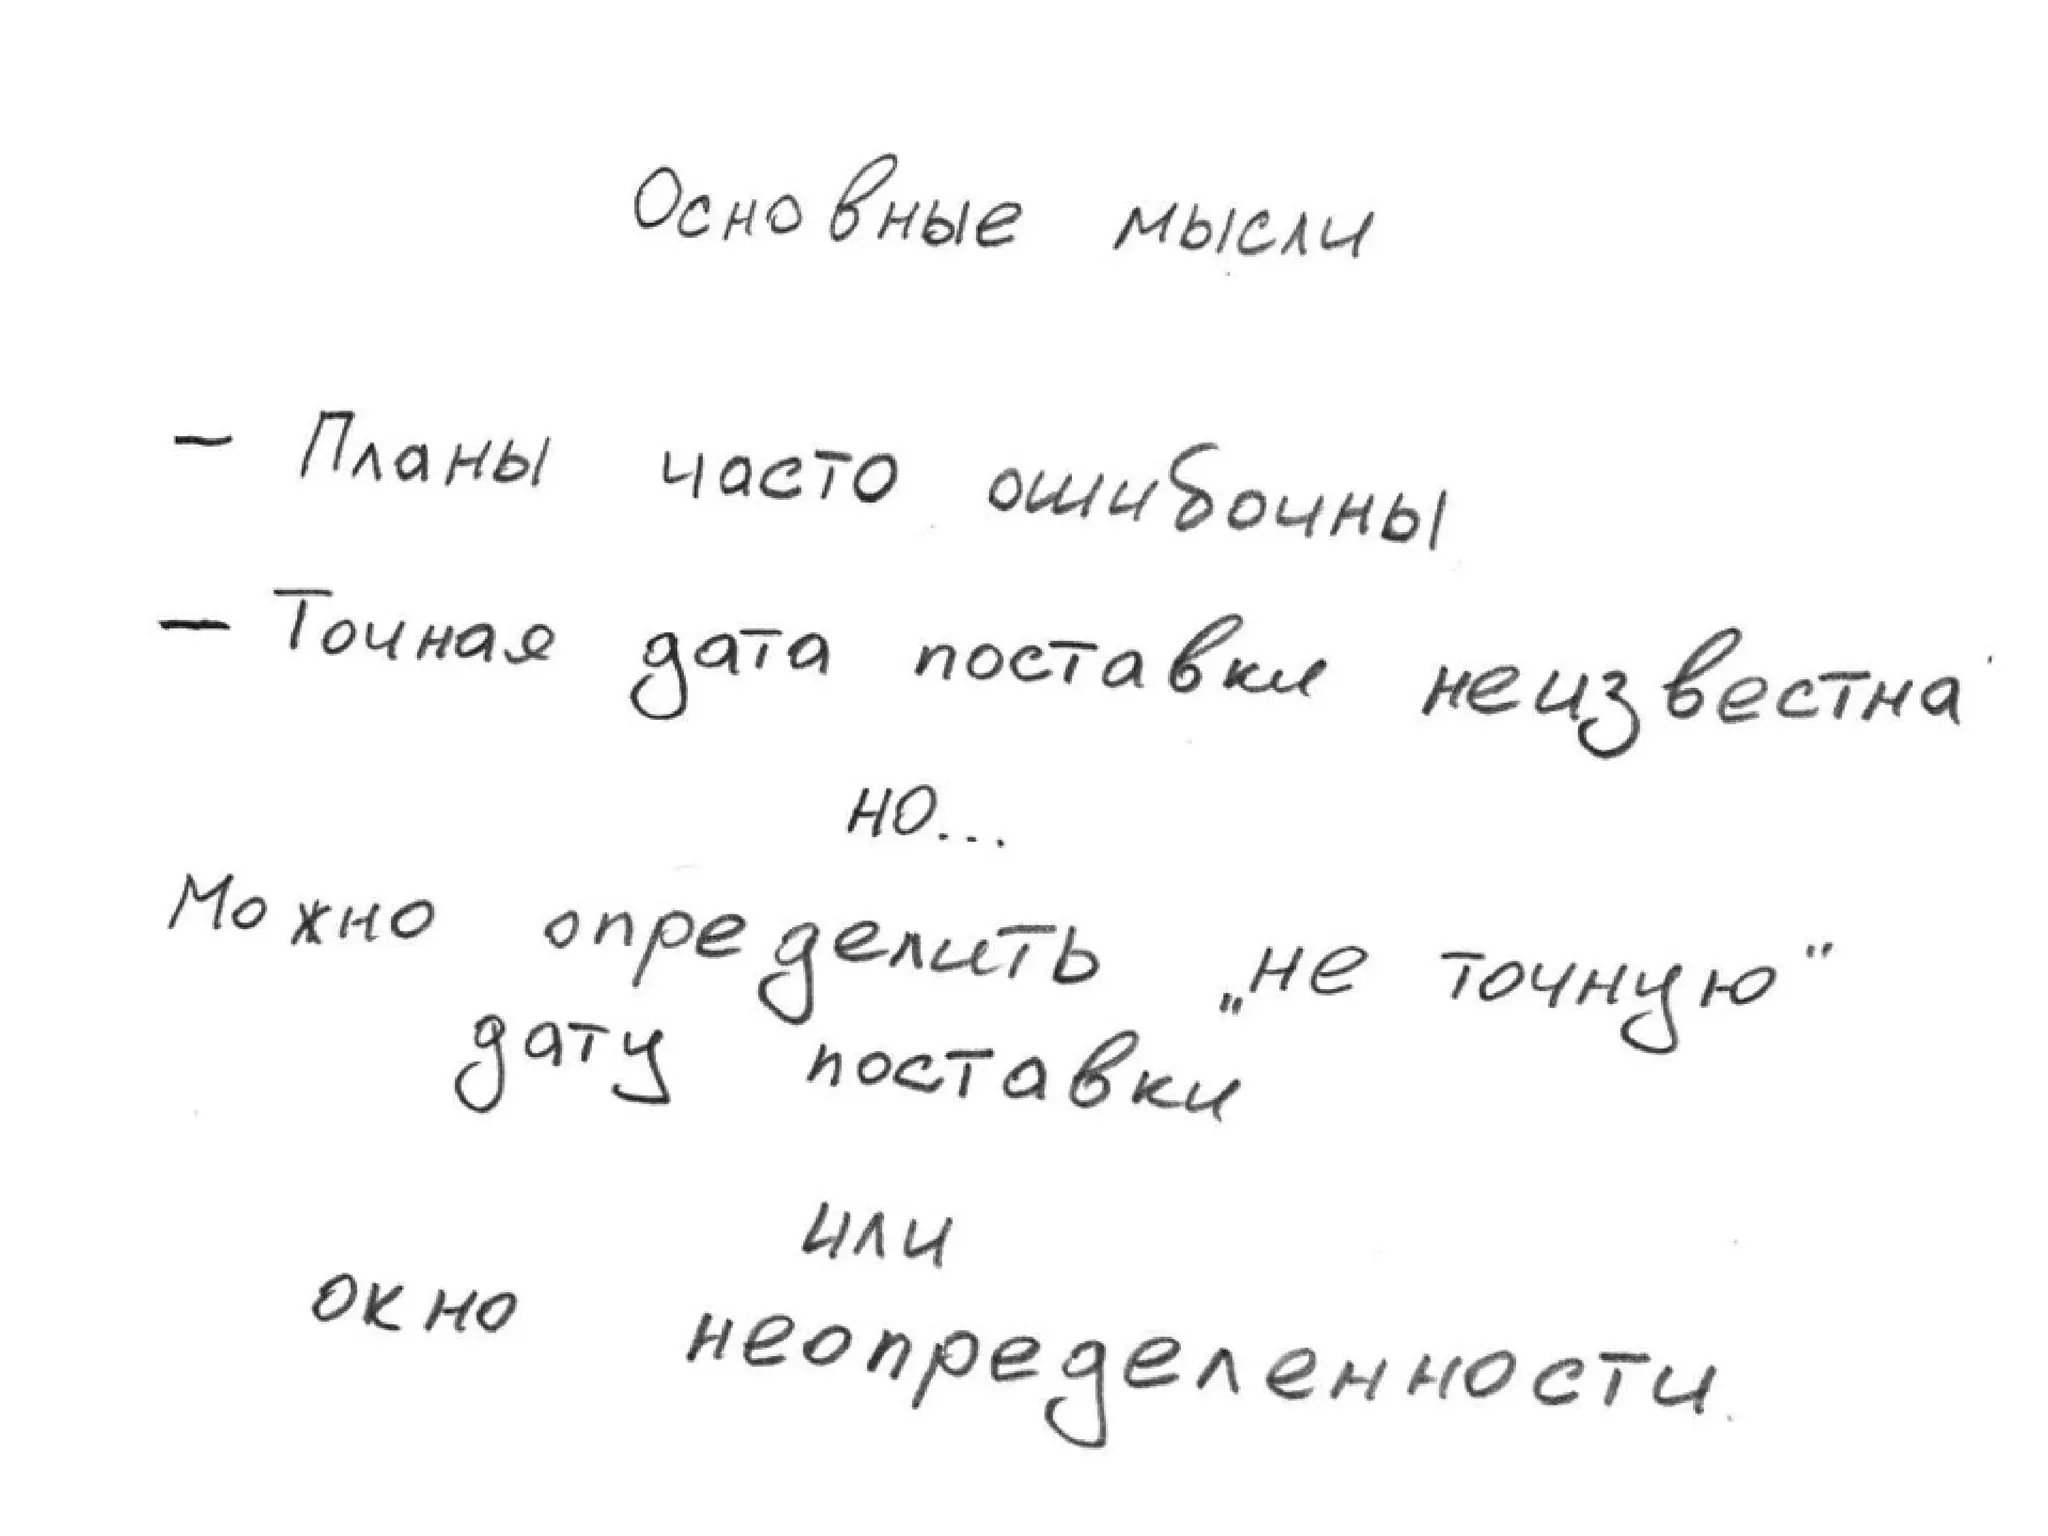 Основные мысли
- Планы часто ошибочны
- Точная дата поставки неизвестна
но...
Можно определить „не точную"
дату поставки
или
окно неопределенности